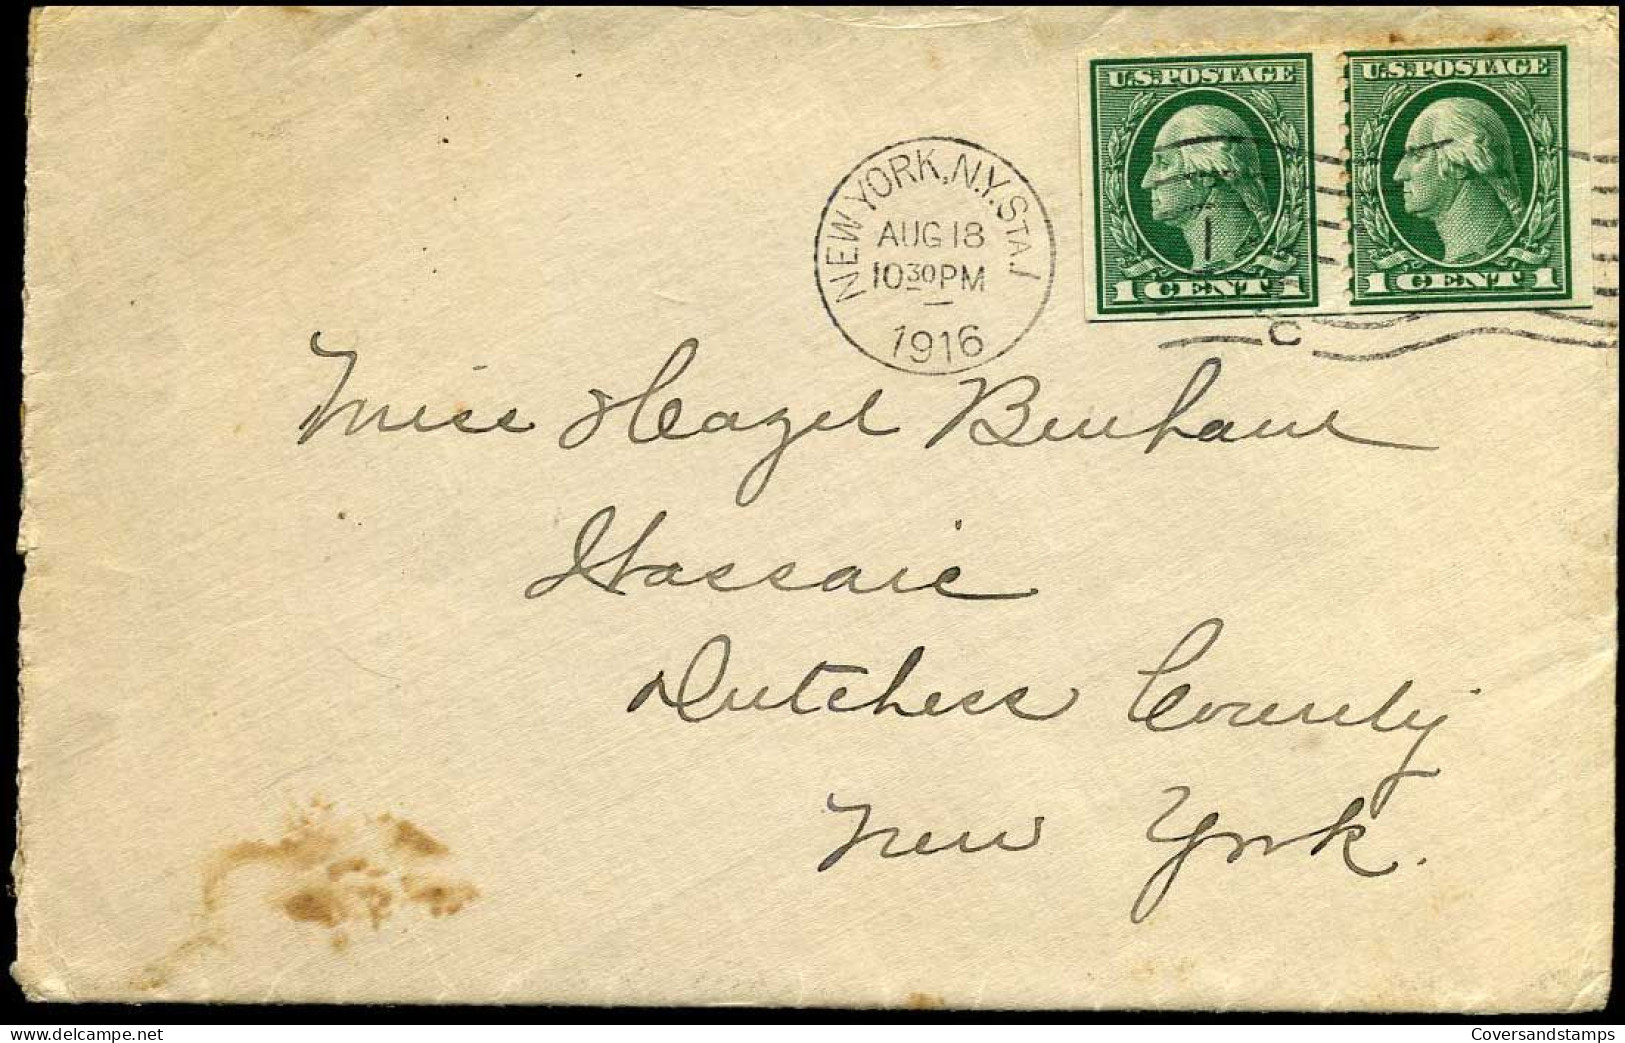 U.S. POSTAGE
1 CENT 1
U.S. POSTAGE
1 CENT 1
NEW YORK, N.Y. STA. J
AUG 18
10 30 PM
1916
C
Miss Hazel Benham
Wassaic
Dutchess County
New York.
Coversandstamps